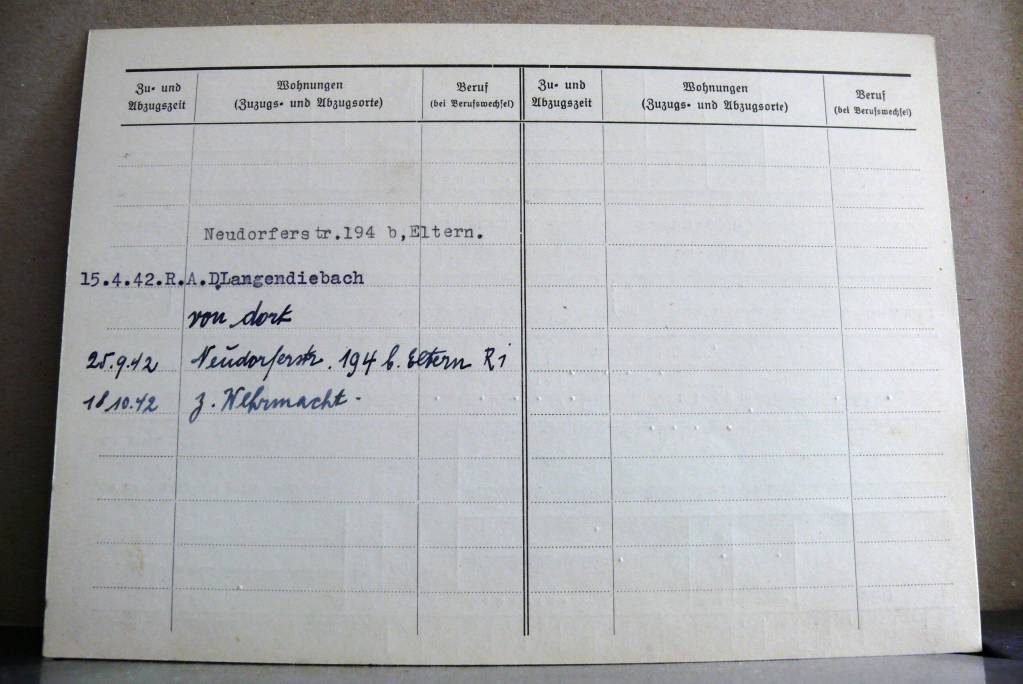 Zu- und Abzugszeit
Wohnungen
(Zuzugs- und Abzugsorte)
Beruf
(bei Berufswechsel)
Zu- und Abzugszeit
Wohnungen
(Zuzugs- und Abzugsorte)
Beruf
(bei Berufswechsel)
Neudorferstr.194 b,Eltern.
15.4.42.R.A.D.Langendiebach
von dort
25.9.42 Neudorferstr. 194 b. Eltern Ri
18.10.42 z. Wehrmacht.